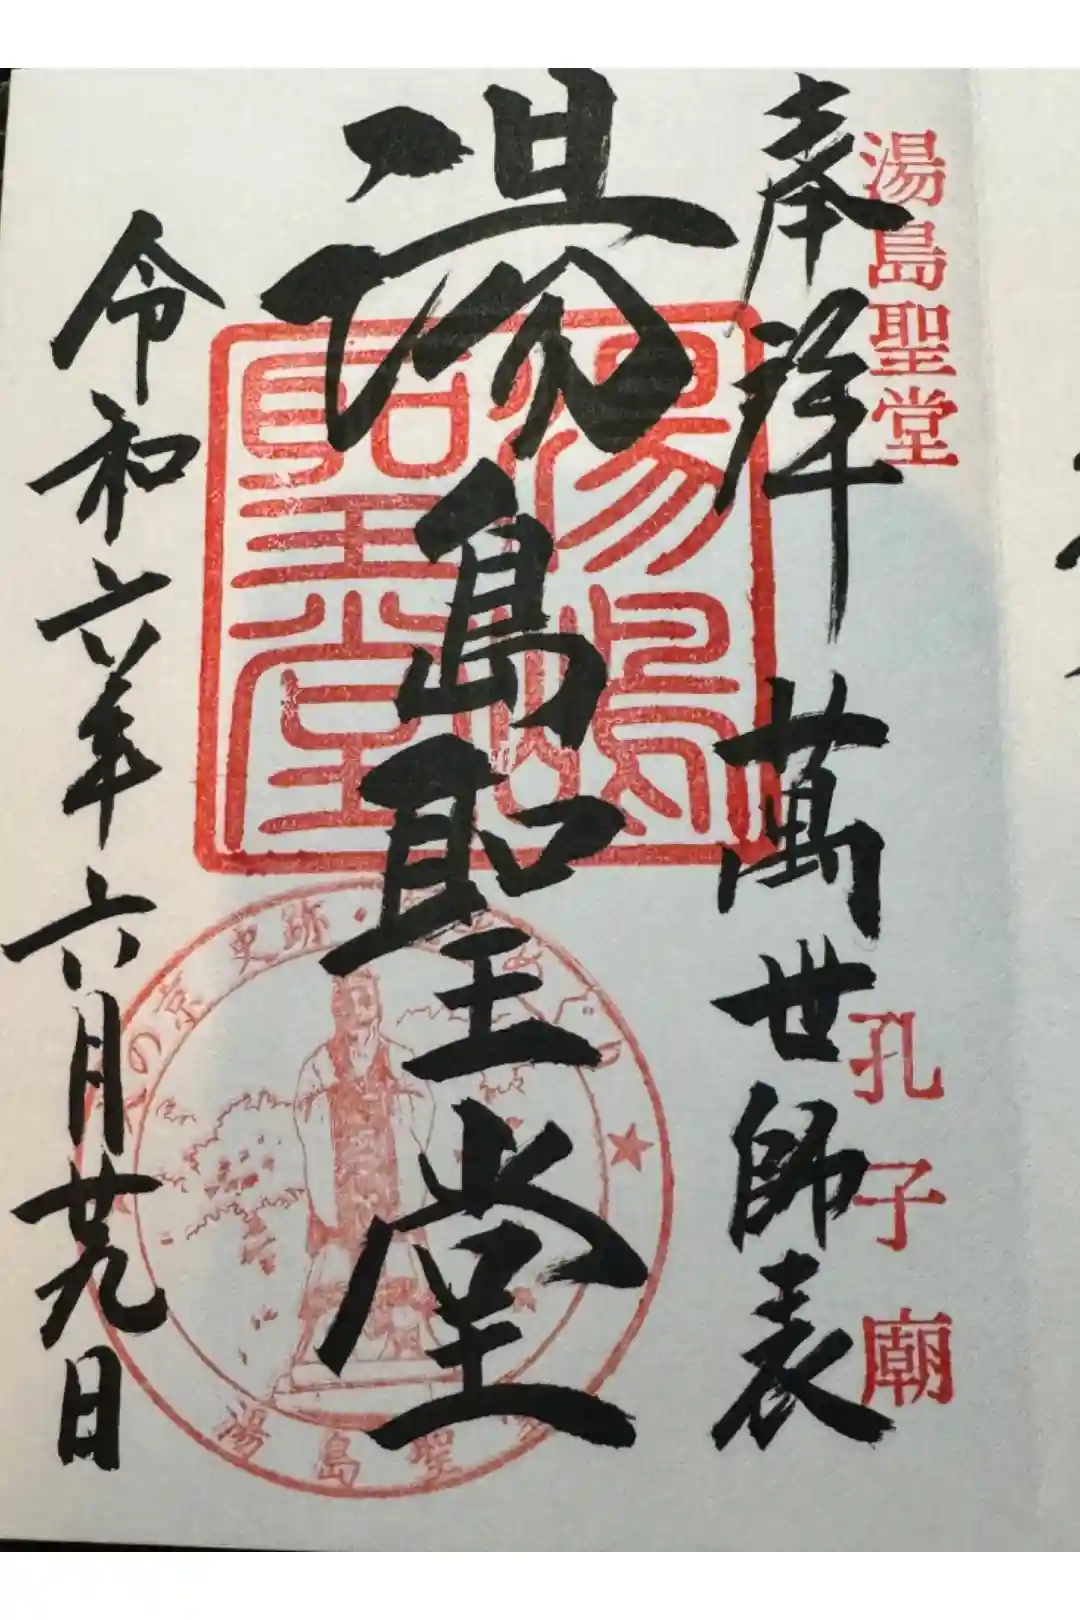 湯島聖堂
孔子廟
奉拝 萬世師表
湯島聖堂
令和六年六月廿九日
湯島
聖堂
の京 史跡・
湯島聖